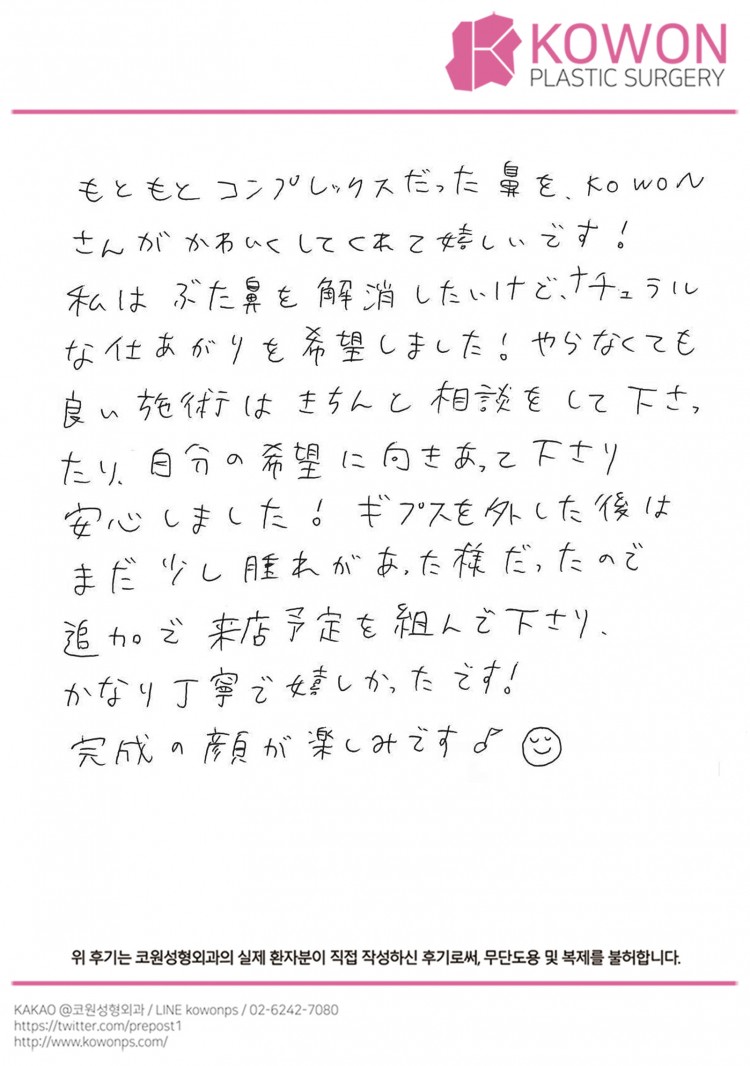 KOWON
PLASTIC SURGERY
もともとコンプレックスだった鼻を、KOWON
さんがかわいくしてくれて嬉しいです!
私はぶた鼻を解消したいけど、ナチュラル
な仕あがりを希望しました!やらなくても
良い施術はきちんと相談をして下さっ
たり、自分の希望に向きあって下さり
安心しました!ギプスを外した後は
まだ少し腫れがあった様だったので
追加で来店予定を組んで下さり、
かなり丁寧で嬉しかったです!
完成の顔が楽しみです♪
위 후기는 코원성형외과의 실제 환자분이 직접 작성하신 후기로써, 무단도용 및 복제를 불허합니다.
KAKAO @코원성형외과 / LINE kowonps / 02-6242-7080
https://twitter.com/prepost1
http://www.kowonps.com/